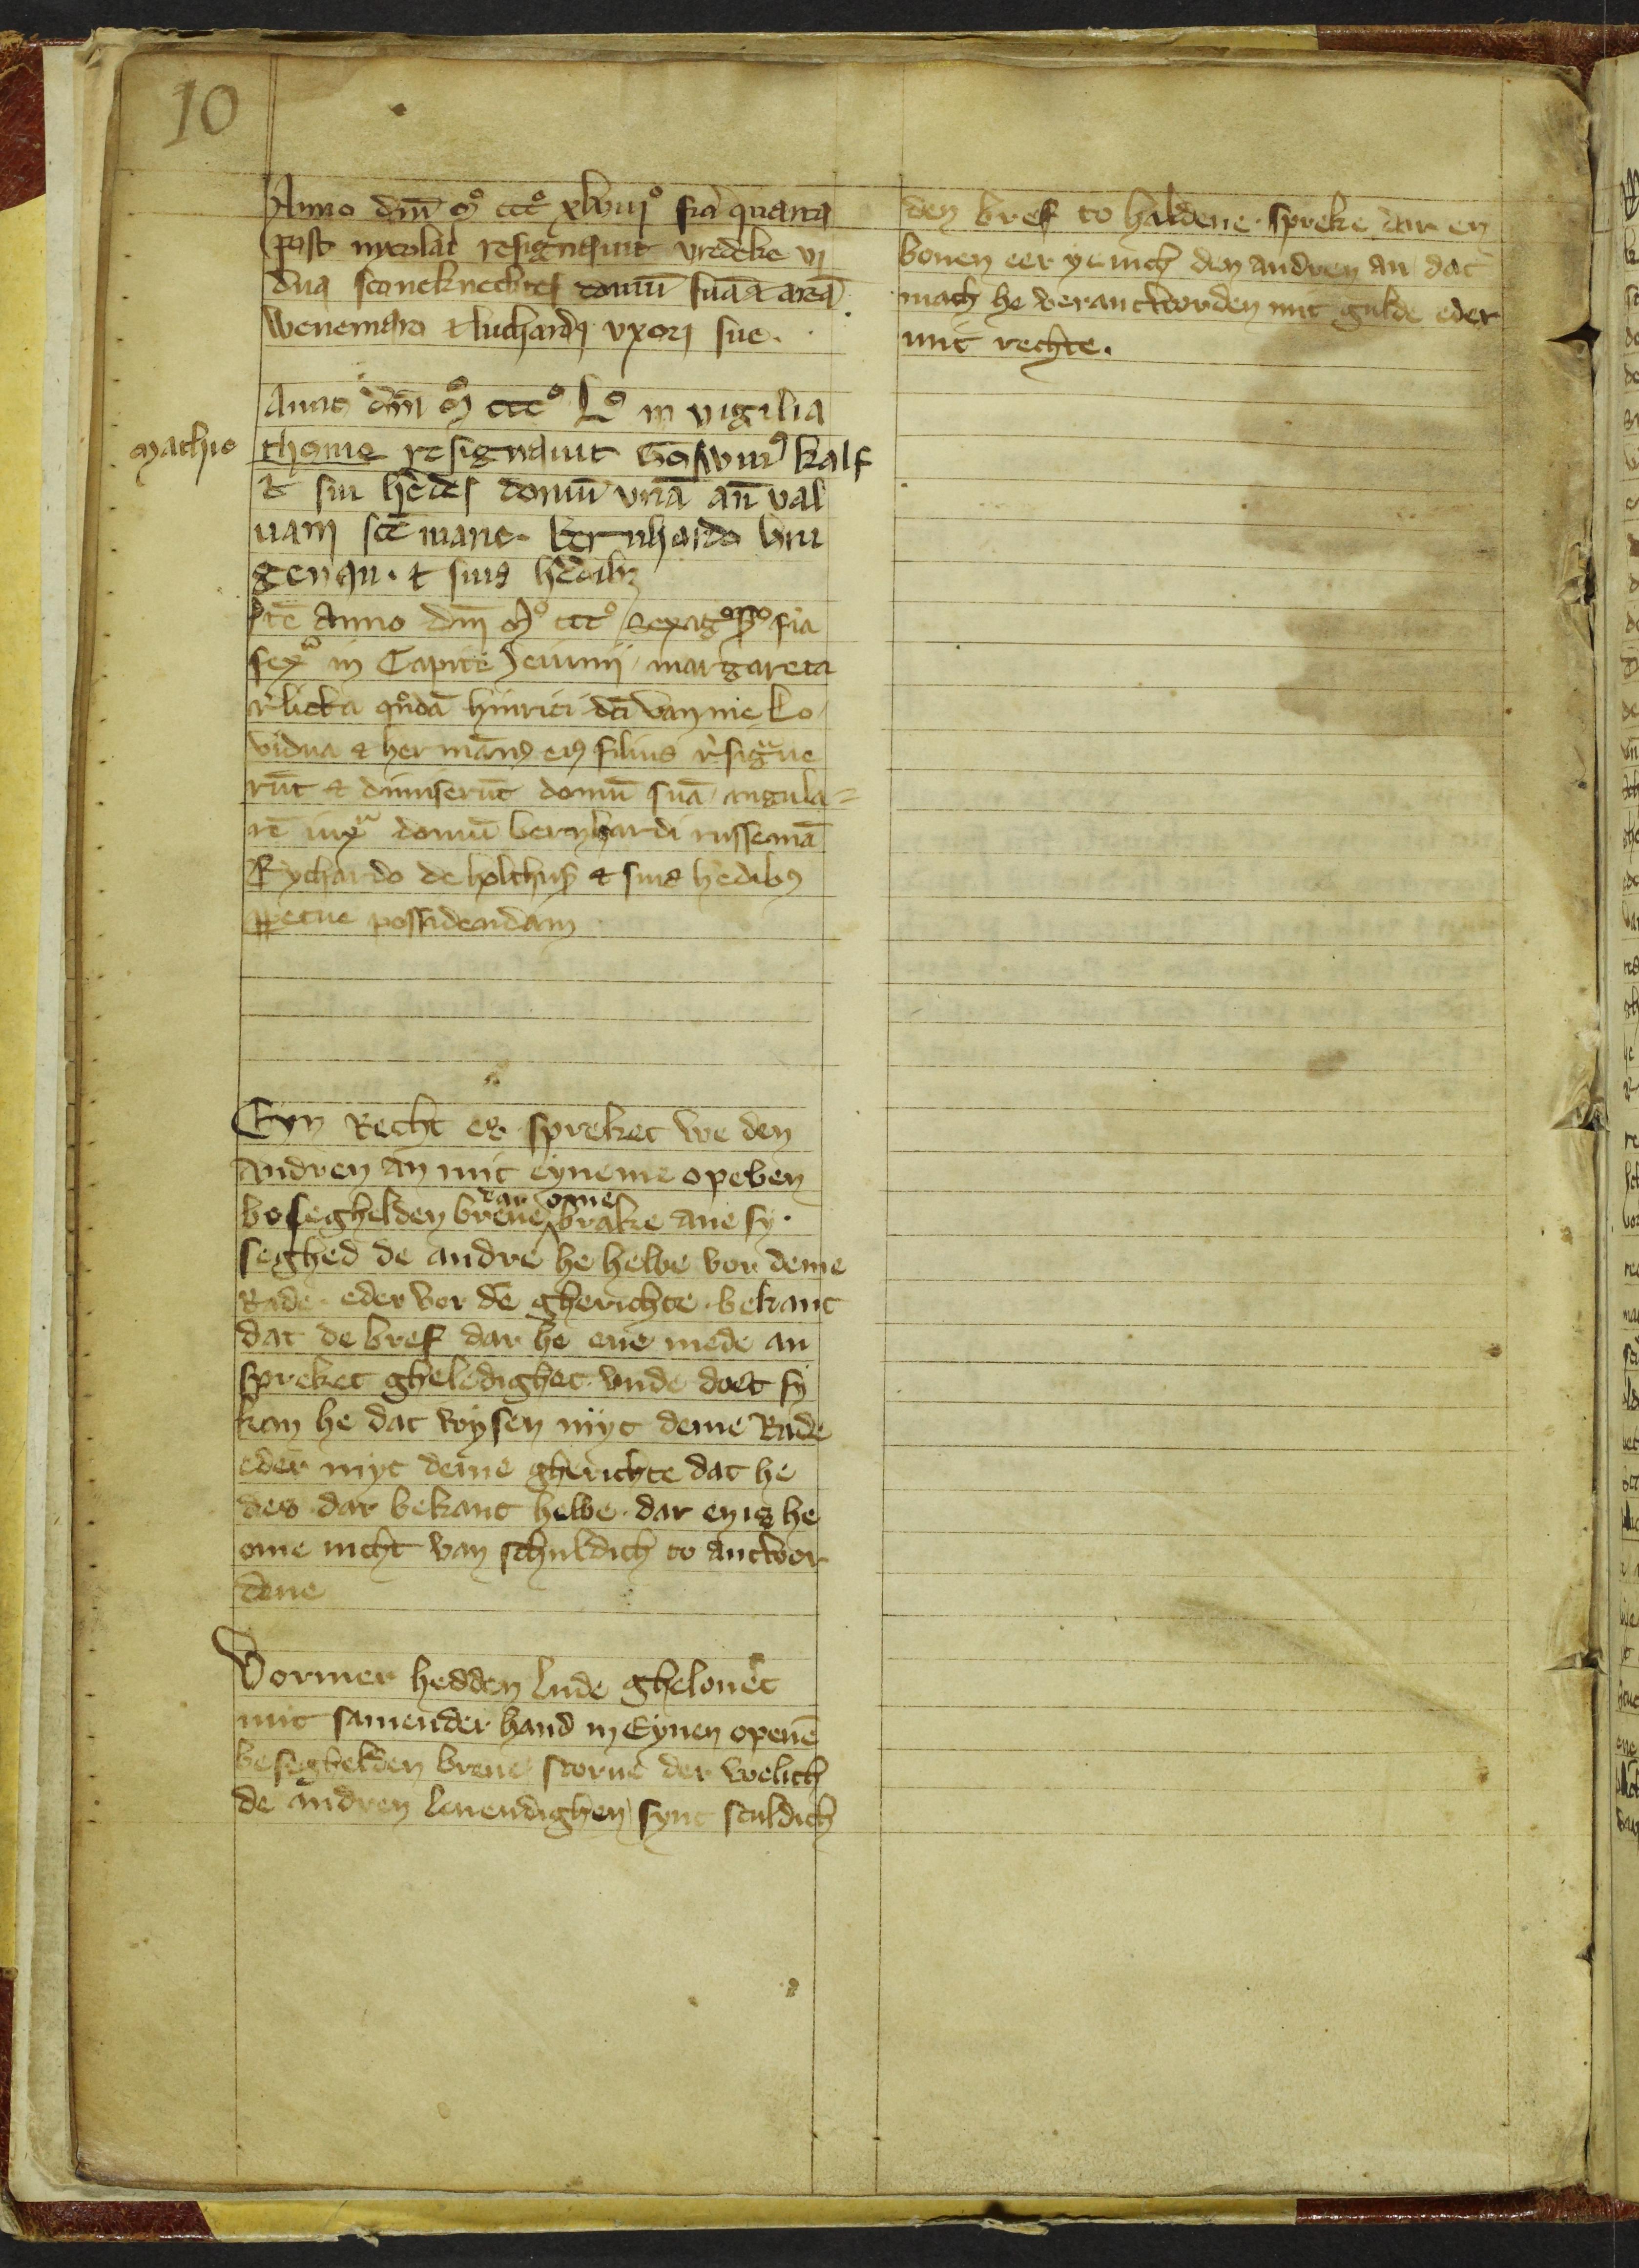 10
Anno dm̄ mͦ cccͦ xlviijͦ fīa quarta
post nycolai resignauit vredeke vi
dua sconeknechtes domū suā & areā
Wenemaro & luchardj vxorj sue.
Anno dm̄ mͦ cccͦ Lͦ in vigilia
thome resignauit Goswinꝰ kalf
mathie
& sui hēdes domū vnā an̄ val
uam scē marie. bernhardo
& suis hēdibꝫ
Itē Anno dm̄ mͦ cccͦ sexagͦ fīa
sexᵃ in Capite Jeiunij margareta
rͤlicta qͦndā hinrici dc̄i van me Lo
vidua & hermānꝰ eiꝰ filius rͤsigᵃue
rūt & dimiserūt domū suā angula=
rē iuxᵃ domū bernhardi russemā
Rychardo de holthusꝫ & suis hēdibꝰ
ꝑpetue possidendam
Eyn Recht es spreket we den
andren an mit eyneme opeben
beseghelden breue dar ome brake ane sy.
seghed de andre he hebbe vor deme
Rade. eder vor dē gherichte. bekant
dat de bref dar he ene mede an
spreket gheledighet. vnde doet sy
kan he dat wysen myt deme Rade
eder myt deme gherichte dat he
des. dar bekant hebbe. dar en is he
ome nicht van schuldich to antwor
dene
Vormer hedden lude ghelouet
mit samender hand in Eynen openē
beseghelden breue storue der welich
de andren leuendighen synt sculdich
den bref to haldene. spreke dar en
bouen eer yenich den andren an dat
mach he verantworden mit gulde eder
mit rechte.